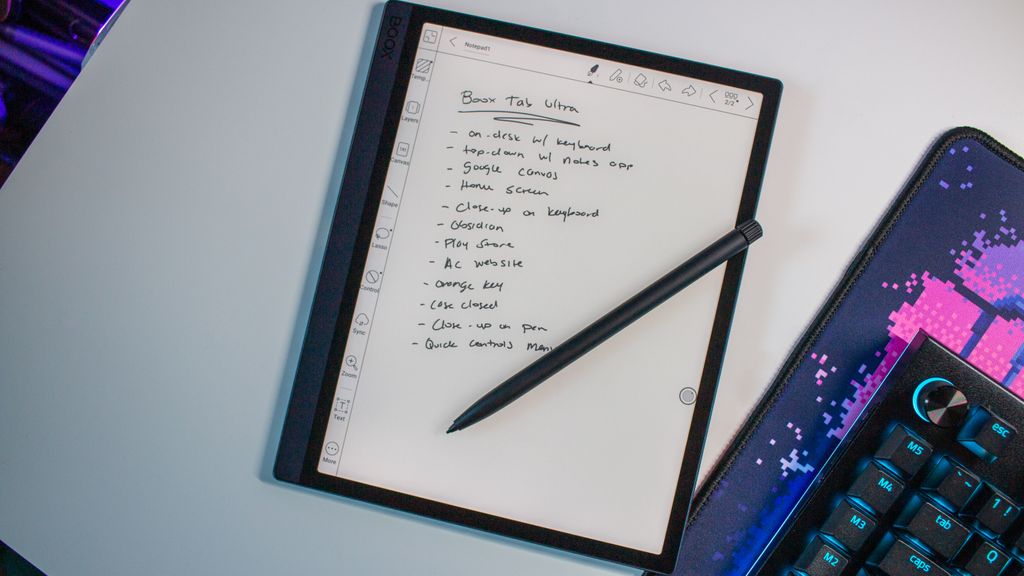 BOOX
Notepad1
2/2
Temp..
Layers
Canvas
Shape
Lasso
Control
Sync
Zoom
Text
More
Boox Tab Ultra
- on-desk w/ keyboard
- top-down w/ notes app
- Google canvas
- Home screen
- Close-up on keyboard
- Obsidian
- Play store
- AC website
- orange key
- case closed
- Close-up on pen
- Quick controls Menu
esc
M5
M4
~ `
1 !
M3
tab
Q
M2
caps